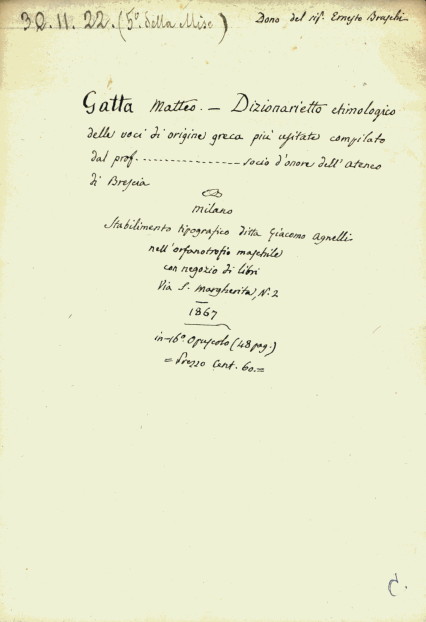 30.11.22. (5º della Misc)
Dono del sig. Ernesto Braschi
Gatta Matteo. — Dizionarietto etimologico
delle voci di origine greca più usitate compilato
dal prof. ----------------- socio d'onore dell'Ateneo
di Brescia
Milano
Stabilimento tipografico ditta Giacomo Agnelli
nell'orfanotrofio maschile
con negozio di libri
Via S. Margherita, N. 2
1867
in-16º Opuscolo (48 pag.)
= Prezzo Cent. 60. =